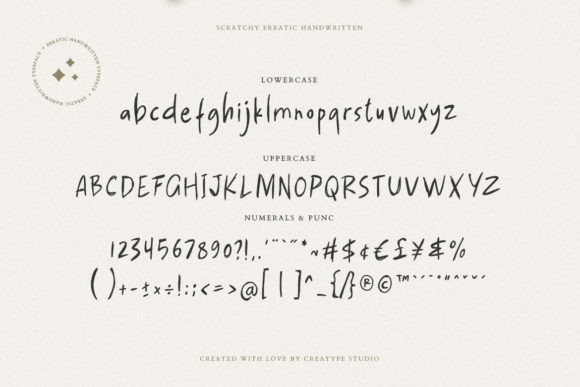 SCRATCHY ERRATIC HANDWRITTEN
ERRATIC HANDWRITTEN TYPEFACE • ERRATIC HANDWRITTEN TYPEFACE •
LOWERCASE
abcdefghijklmnopqrstuvwxyz
UPPERCASE
ABCDEFGHIJKLMNOPQRSTUVWXYZ
NUMERALS & PUNC
1234567890?!,.'¨˝*~#$¢€£¥&%
()+-±×÷!:;<=>@[|]^_{/}®©™
CREATED WITH LOVE BY CREATYPE STUDIO